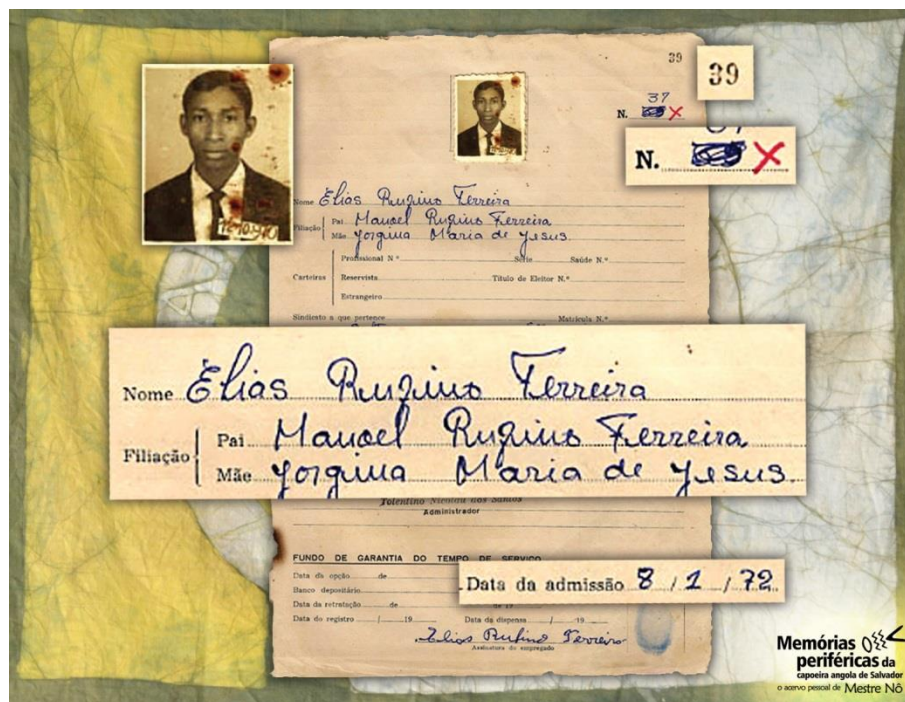 39
39
37
N. X
N. X
Nome Elias Rufino Ferreira
Filiação
Pai Manoel Rufino Ferreira
Mãe Jorgina Maria de Jesus
Profissional N.º Série Saúde N.º
Carteiras Reservista Título de Eleitor N.º
Estrangeiro
Sindicato a que pertence Matrícula N.º
Nome Elias Rufino Ferreira
Filiação
Pai Manoel Rufino Ferreira
Mãe Jorgina Maria de Jesus
Tolentino Nicolau dos Santos
Administrador
FUNDO DE GARANTIA DO TEMPO DE SERVIÇO
Data da opção de
Data da admissão 8 / 1 / 72
Banco depositário
Data da retratação de de 19
Data do registro / 19 Data da dispensa / 19
Elias Rufino Ferreira
Assinatura do empregado
Memórias
periféricas da
capoeira angola de Salvador
o acervo pessoal de Mestre Nô